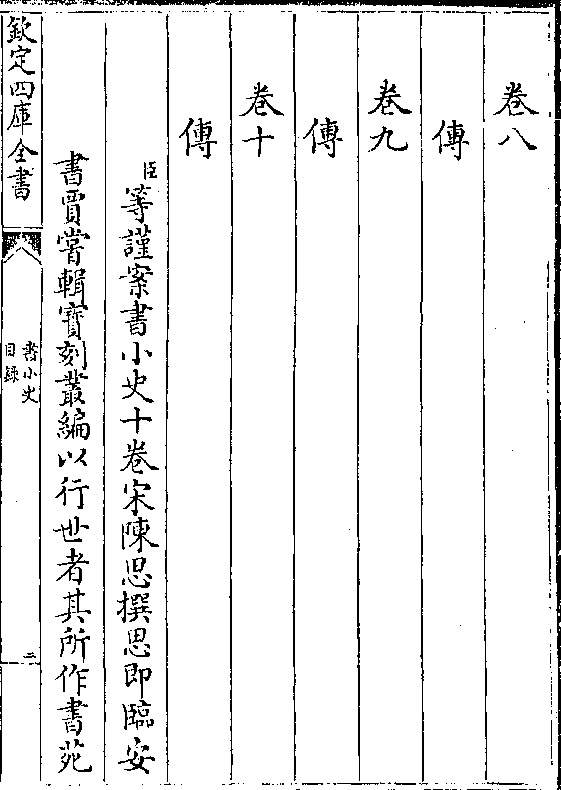 卷八
傳
卷九
傳
卷十
傳
臣等謹案書小史十卷宋陳思撰思即臨安
書賈嘗輯寳刻叢編以行世者其所作書苑
欽定四庫全書
書小史
目錄
二